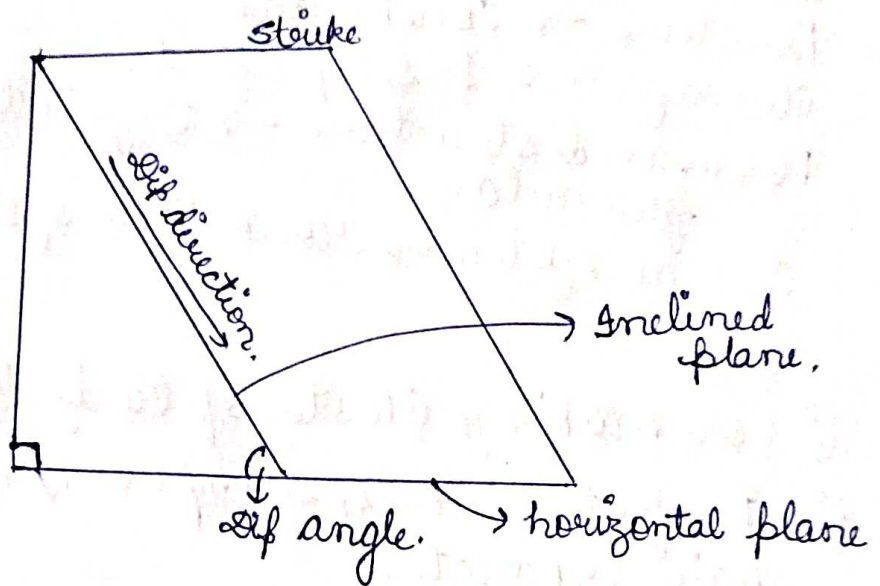 strike
Dip direction.
Inclined
plane.
Dip angle.
horizontal plane